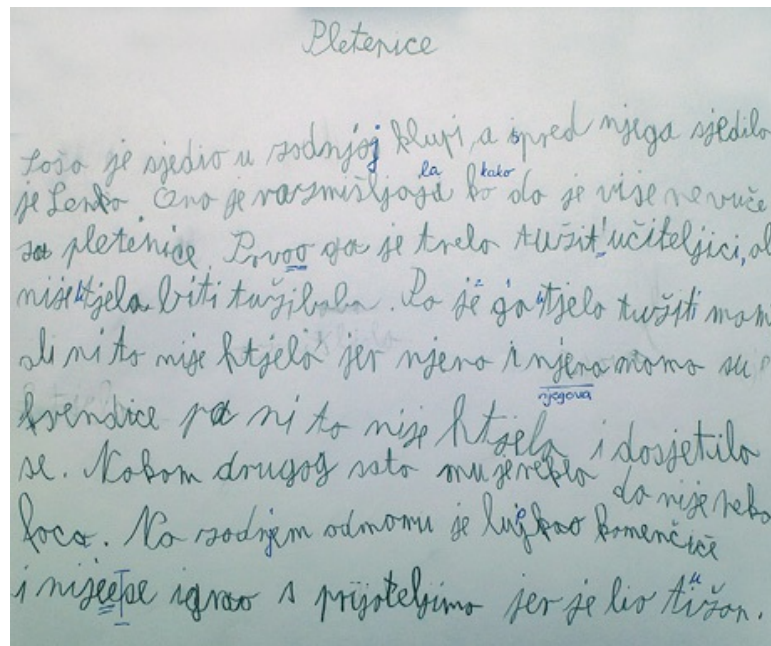 Pletenice
Toša je sjedio u zadnjoj klupi, a ispred njega sjedila
je Lenka Ona je razmišljaga la ko kako da je više ne vuče
za pletenice. Prvoo ga je trela tužit učiteljici, al
nije htjela biti tužibaba. Pa je ga htjela tužiti mam
ali ni to nije htjela jer njena i njena mama su
njegova
frendice pa ni to nije htjela i dosjetila
se. Nakom drugog sata mu je rekla da nije neka
faca. Na zadnjem odmomu je lupkao kamenčiće
i nije se igrao s prijateljima jer je bio tižan.